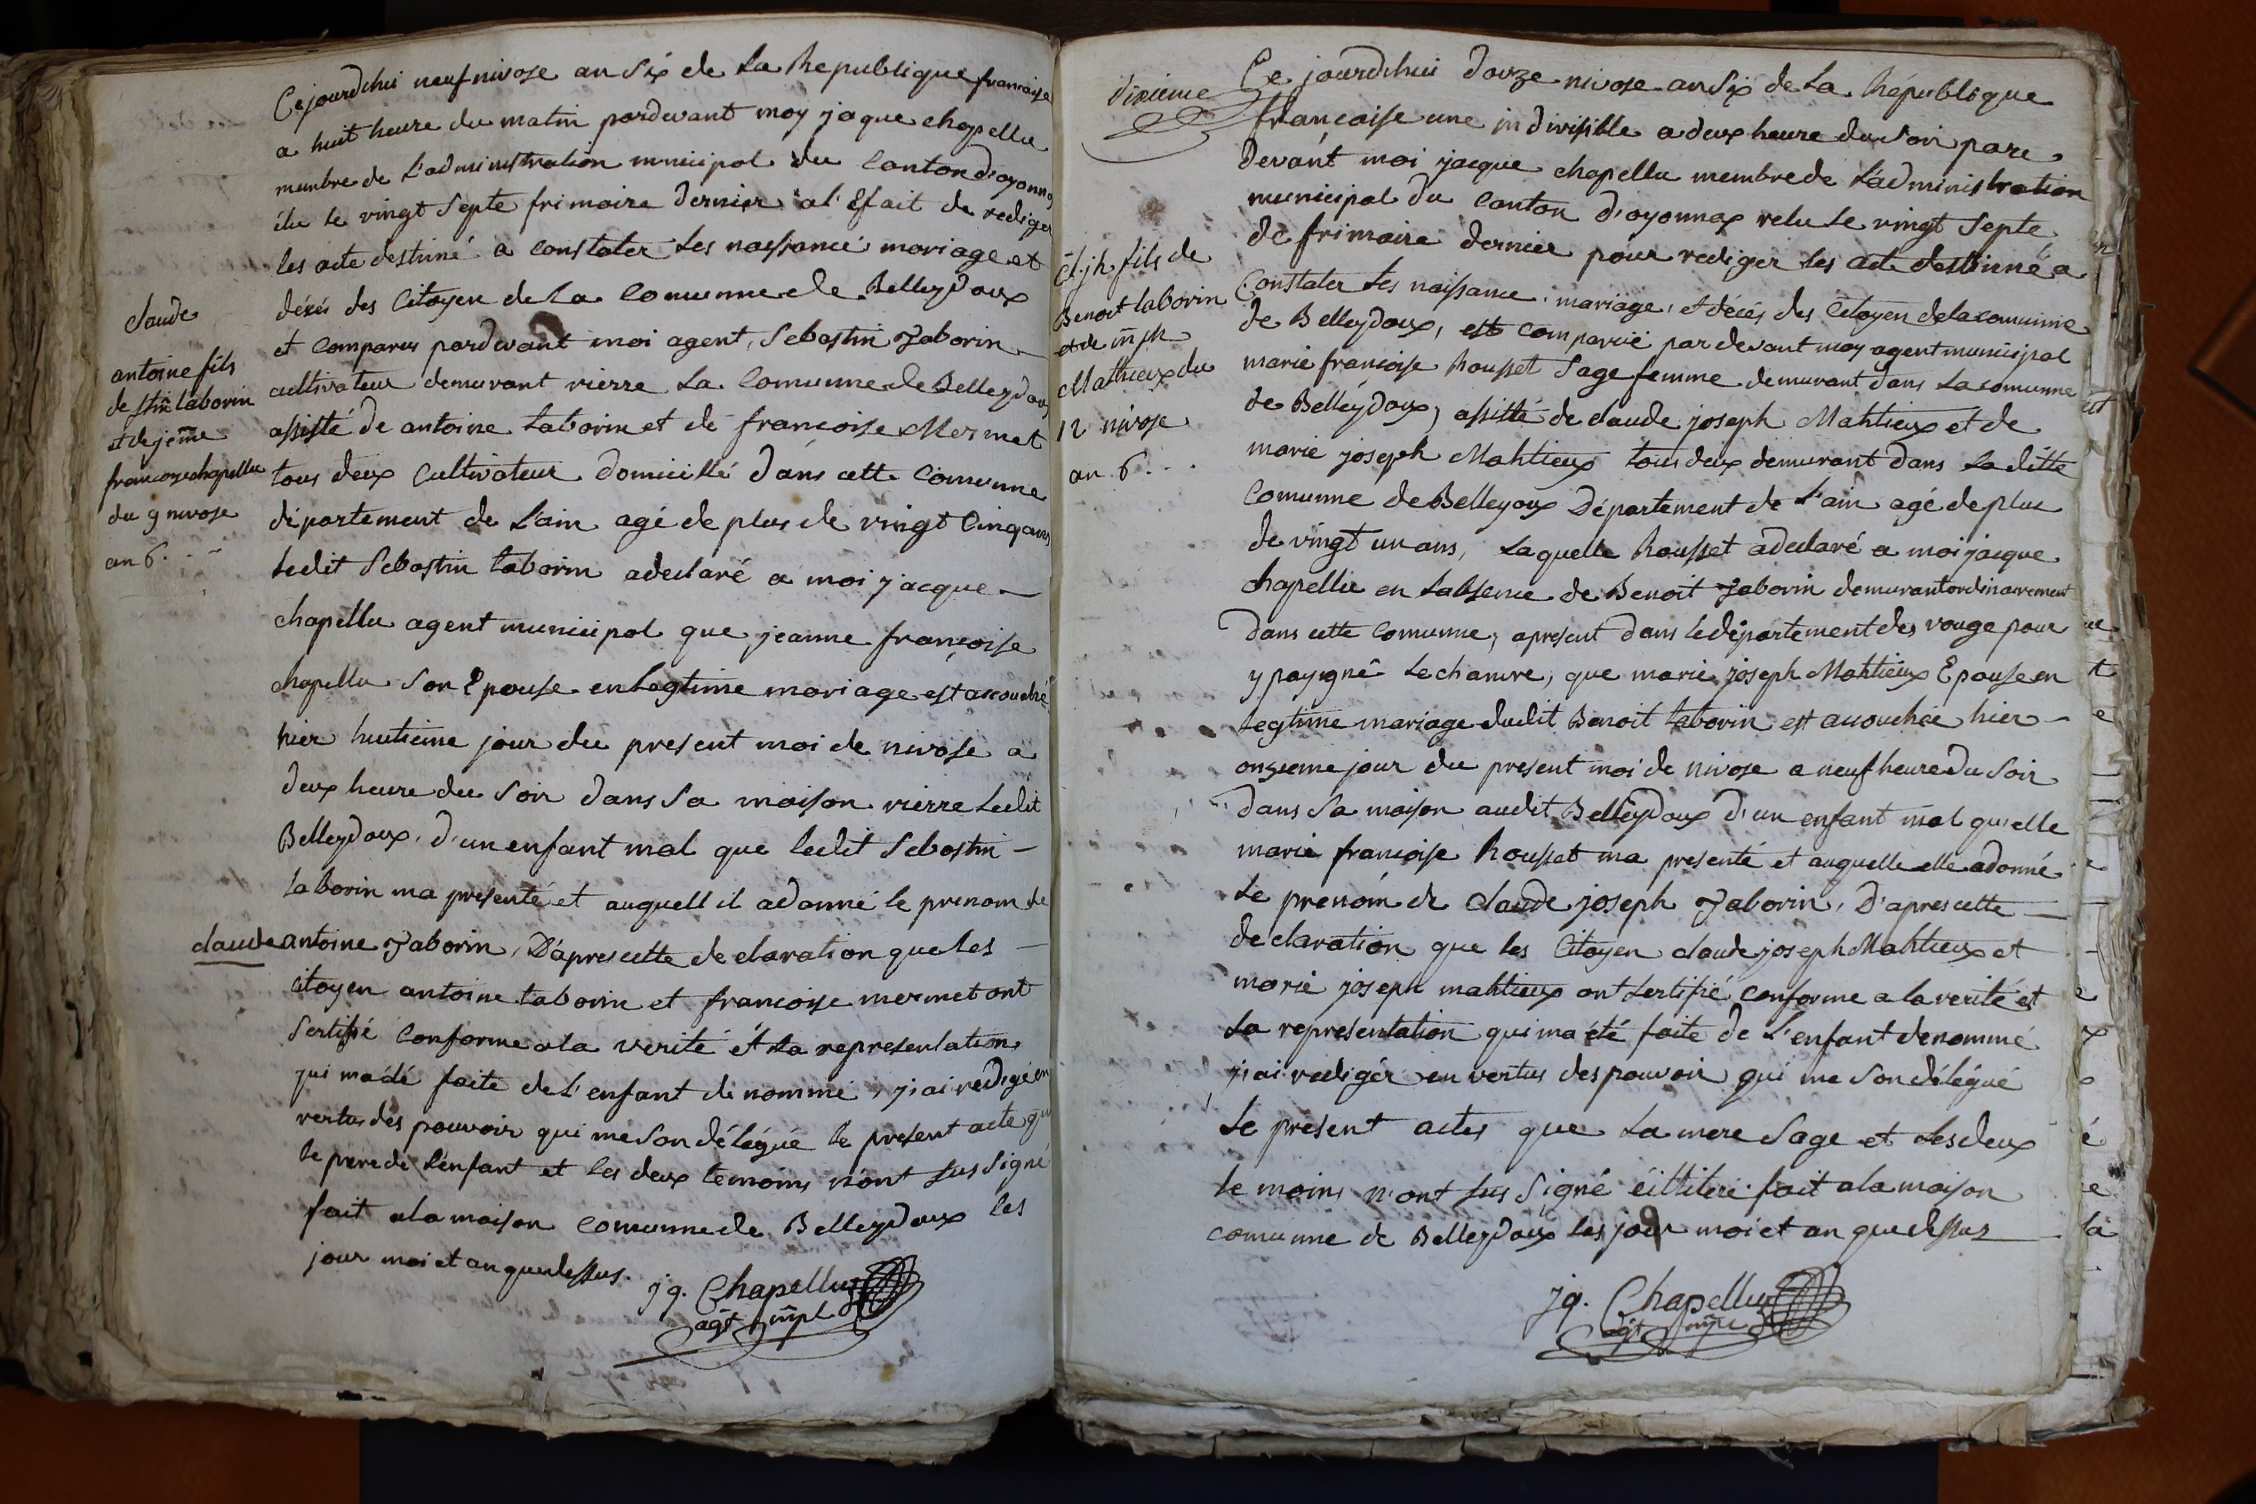 Ce jourdhui neuf nivose an Six de La Republique francoise
a huit heure du matin pardevant moy jaque chapellu
membre de L'administration municipal du Canton d'oyonnax
élu le vingt Septe frimaire dernier a l'Efait de rediger
les acte destiné a constater Les naissance mariage et
décés des Citoyen de La Comunne de Belleydoux
et comparus pardevant moi agent, Sebastin Taborin
cultivateur demurant rierre La Comunne de Belleydoux
assisté de antoine taborin et de francoise Mermet
tous deux Cultivateur domicillé dans cette Comunne
département de L'ain agé de plus de vingt Cinq ans
Ledit Sebastin taborin a declaré a moi jacque
chapellu agent municipal que jeanne francoise
chapellu Son Epouse en Legtime mariage est acouché
hier huitieme jour du present moi de nivose a
deux heure du Soir dans Sa maison rierre Ledit
Belleydoux, d'un enfant mal que ledit Sebastin
taborin ma presenté et auquell il a donné le prenom de
claude antoine Taborin, D'apres cette declaration que Les
Citoyen antoine taborin et francoise mermet ont
Sertifié Conforme a la verité et La representation
qui ma été faite de L'enfant denommé, j'ai redigé en
vertus des pouvoir qui me Son délégué le present acte que
le pere de L'enfant et les deux temoins n'ont Sus Signé
fait a la maison comunne de Belleydoux les
jour moi et an que dessus.
jq. Chapellu
agt mpl
claude
antoine fils
de Stin taborin
et de jenne
francoise chapellu
du 9 nivose
an 6.
dixieme
Ct jh fils de
Benoit taborin
et de
Mathieux du
12 nivose
an 6.
Ce jourdhui douze nivose an Six de La République
francaise une indivisible a deux heure du Soir pare
devant moi jacque chapellu membre de L'administration
municipal du Canton d'oyonnax velu le vingt Septe
de frimaire dernier pour rediger les acte destinné a
Constater Les naissance, mariage, et décés des Citoyen de la comunne
de Belleydoux, est comparué par devant moy agent municipal
marie francoise Rousset Sage femme demurant dans La comunne
de Belléydoux, assisté de claude joseph Mahtieux et de
marie joseph Mahtieux tous deux demurant dans La ditte
Comunne de Belleyoux Département de L'ain agé de plus
de vingt un ans, Laquelle Rousset a declaré a moi jacque
chapellu en Labsence de Benoit Taborin demurant ordinairement
dans cette Comunne, apresent dans le département des vouge pour
y paygné Le chanvre, que marie joseph Mahtieux Epouse en
Legtime mariage dudit Benoit taborin est acouchée hier
onzieme jour du present moi de nivose a neuf heure du Soir
dans Sa maison audit Belleydoux d'un enfant mal qu'elle
marie francoise Rousset ma presenté et auquelle elle a donné
Le prenom de claude joseph Taborin, D'apres cette
declaration que les Citoyen claude joseph Mahtieux et
marie joseph mahtieux ont Sertifié Conforme a la verité et
La representation qui ma été faite de L'enfant denommé
j'ai rediger en vertus des pouvoir qui me Son délégué
Le present actes que La mere Sage et Les deux
te moins n'ont Sus Signé fait a la maison
comunne de Belleydoux Les jour moi et an que dessus
jq. Chapellu
agt